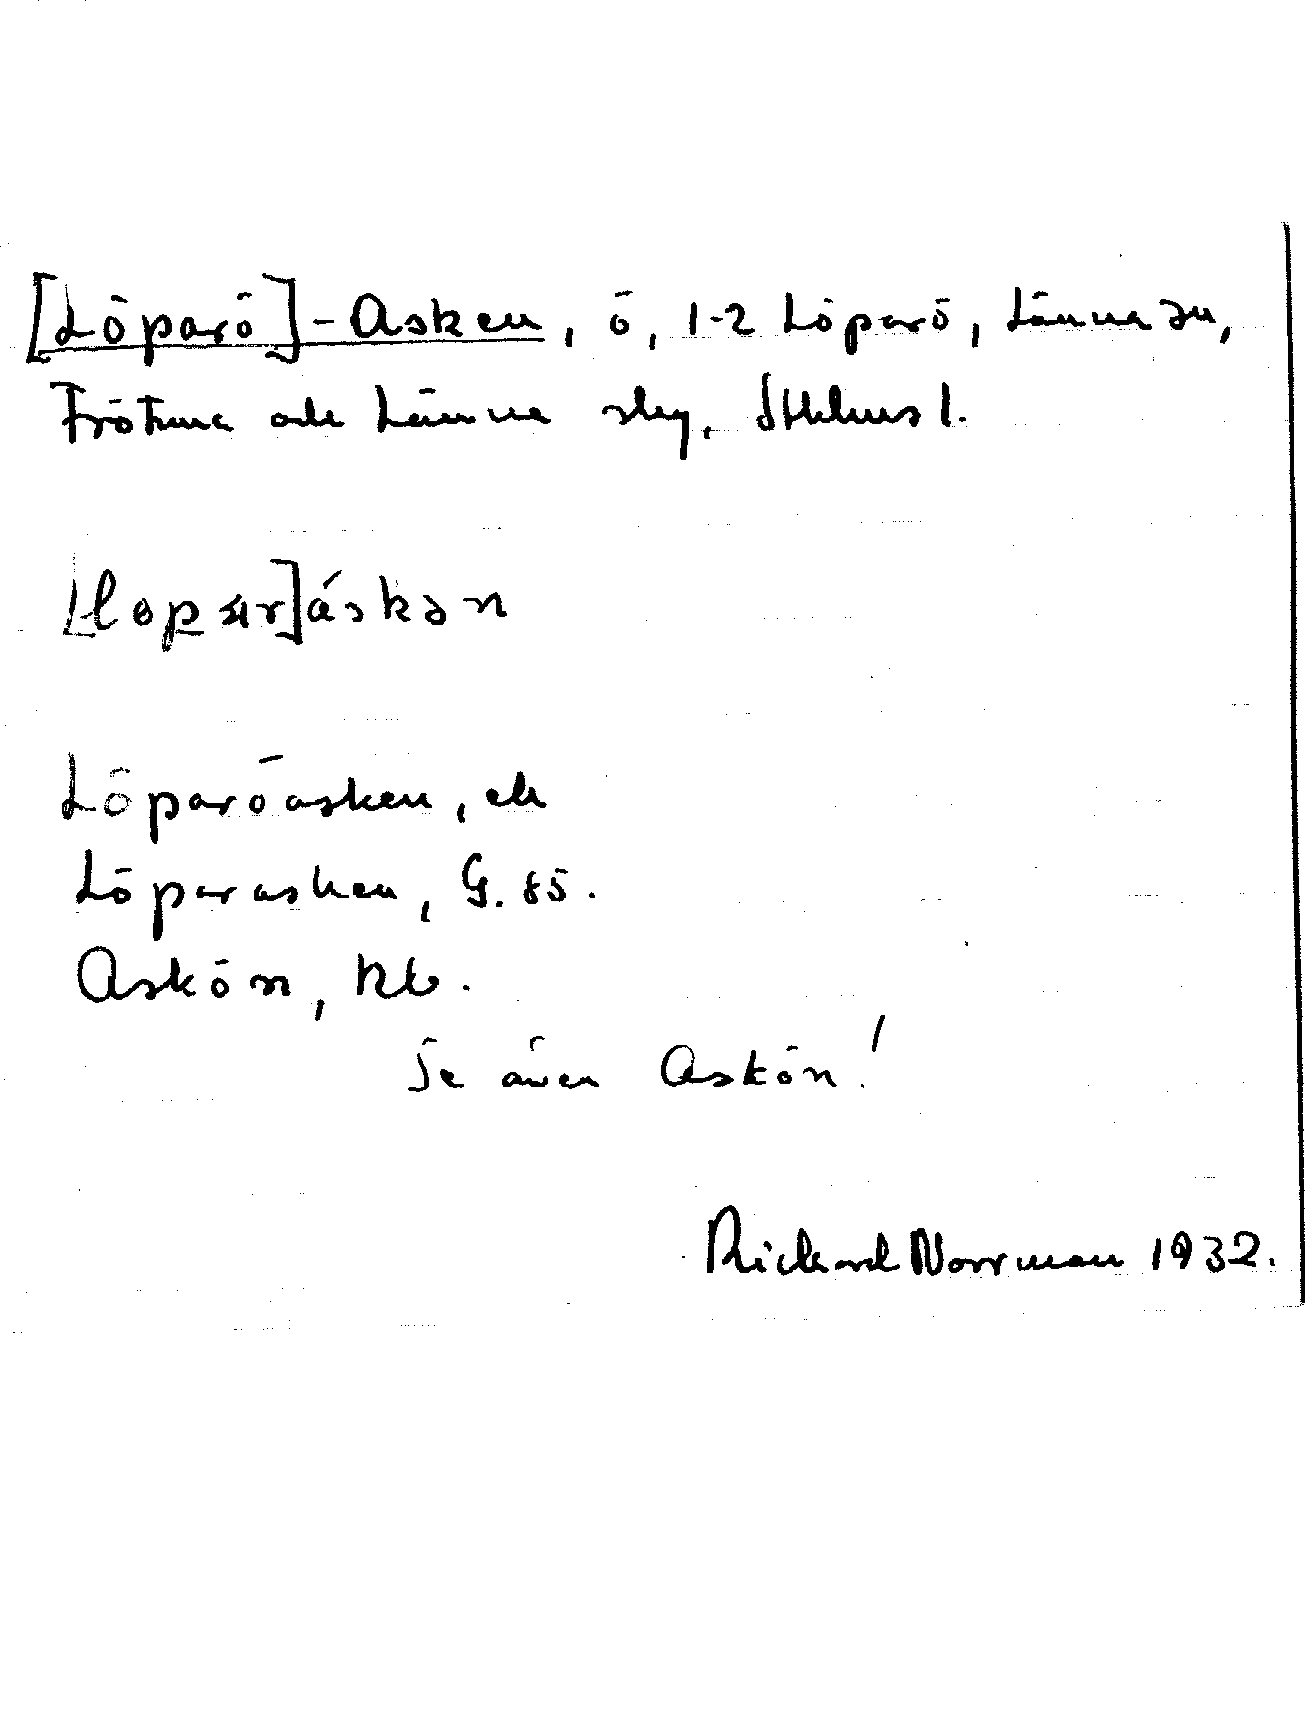 [Löparö]-Asken, ö, 1-2 Löparö, Länna sn,
Frötuna och Länna skg, Sthlms l.
áskən
Löparöasken, ek
Löparasken, G. 85.
Askön, Kb.
Se även Askön!
Rickard Norrman 1932.